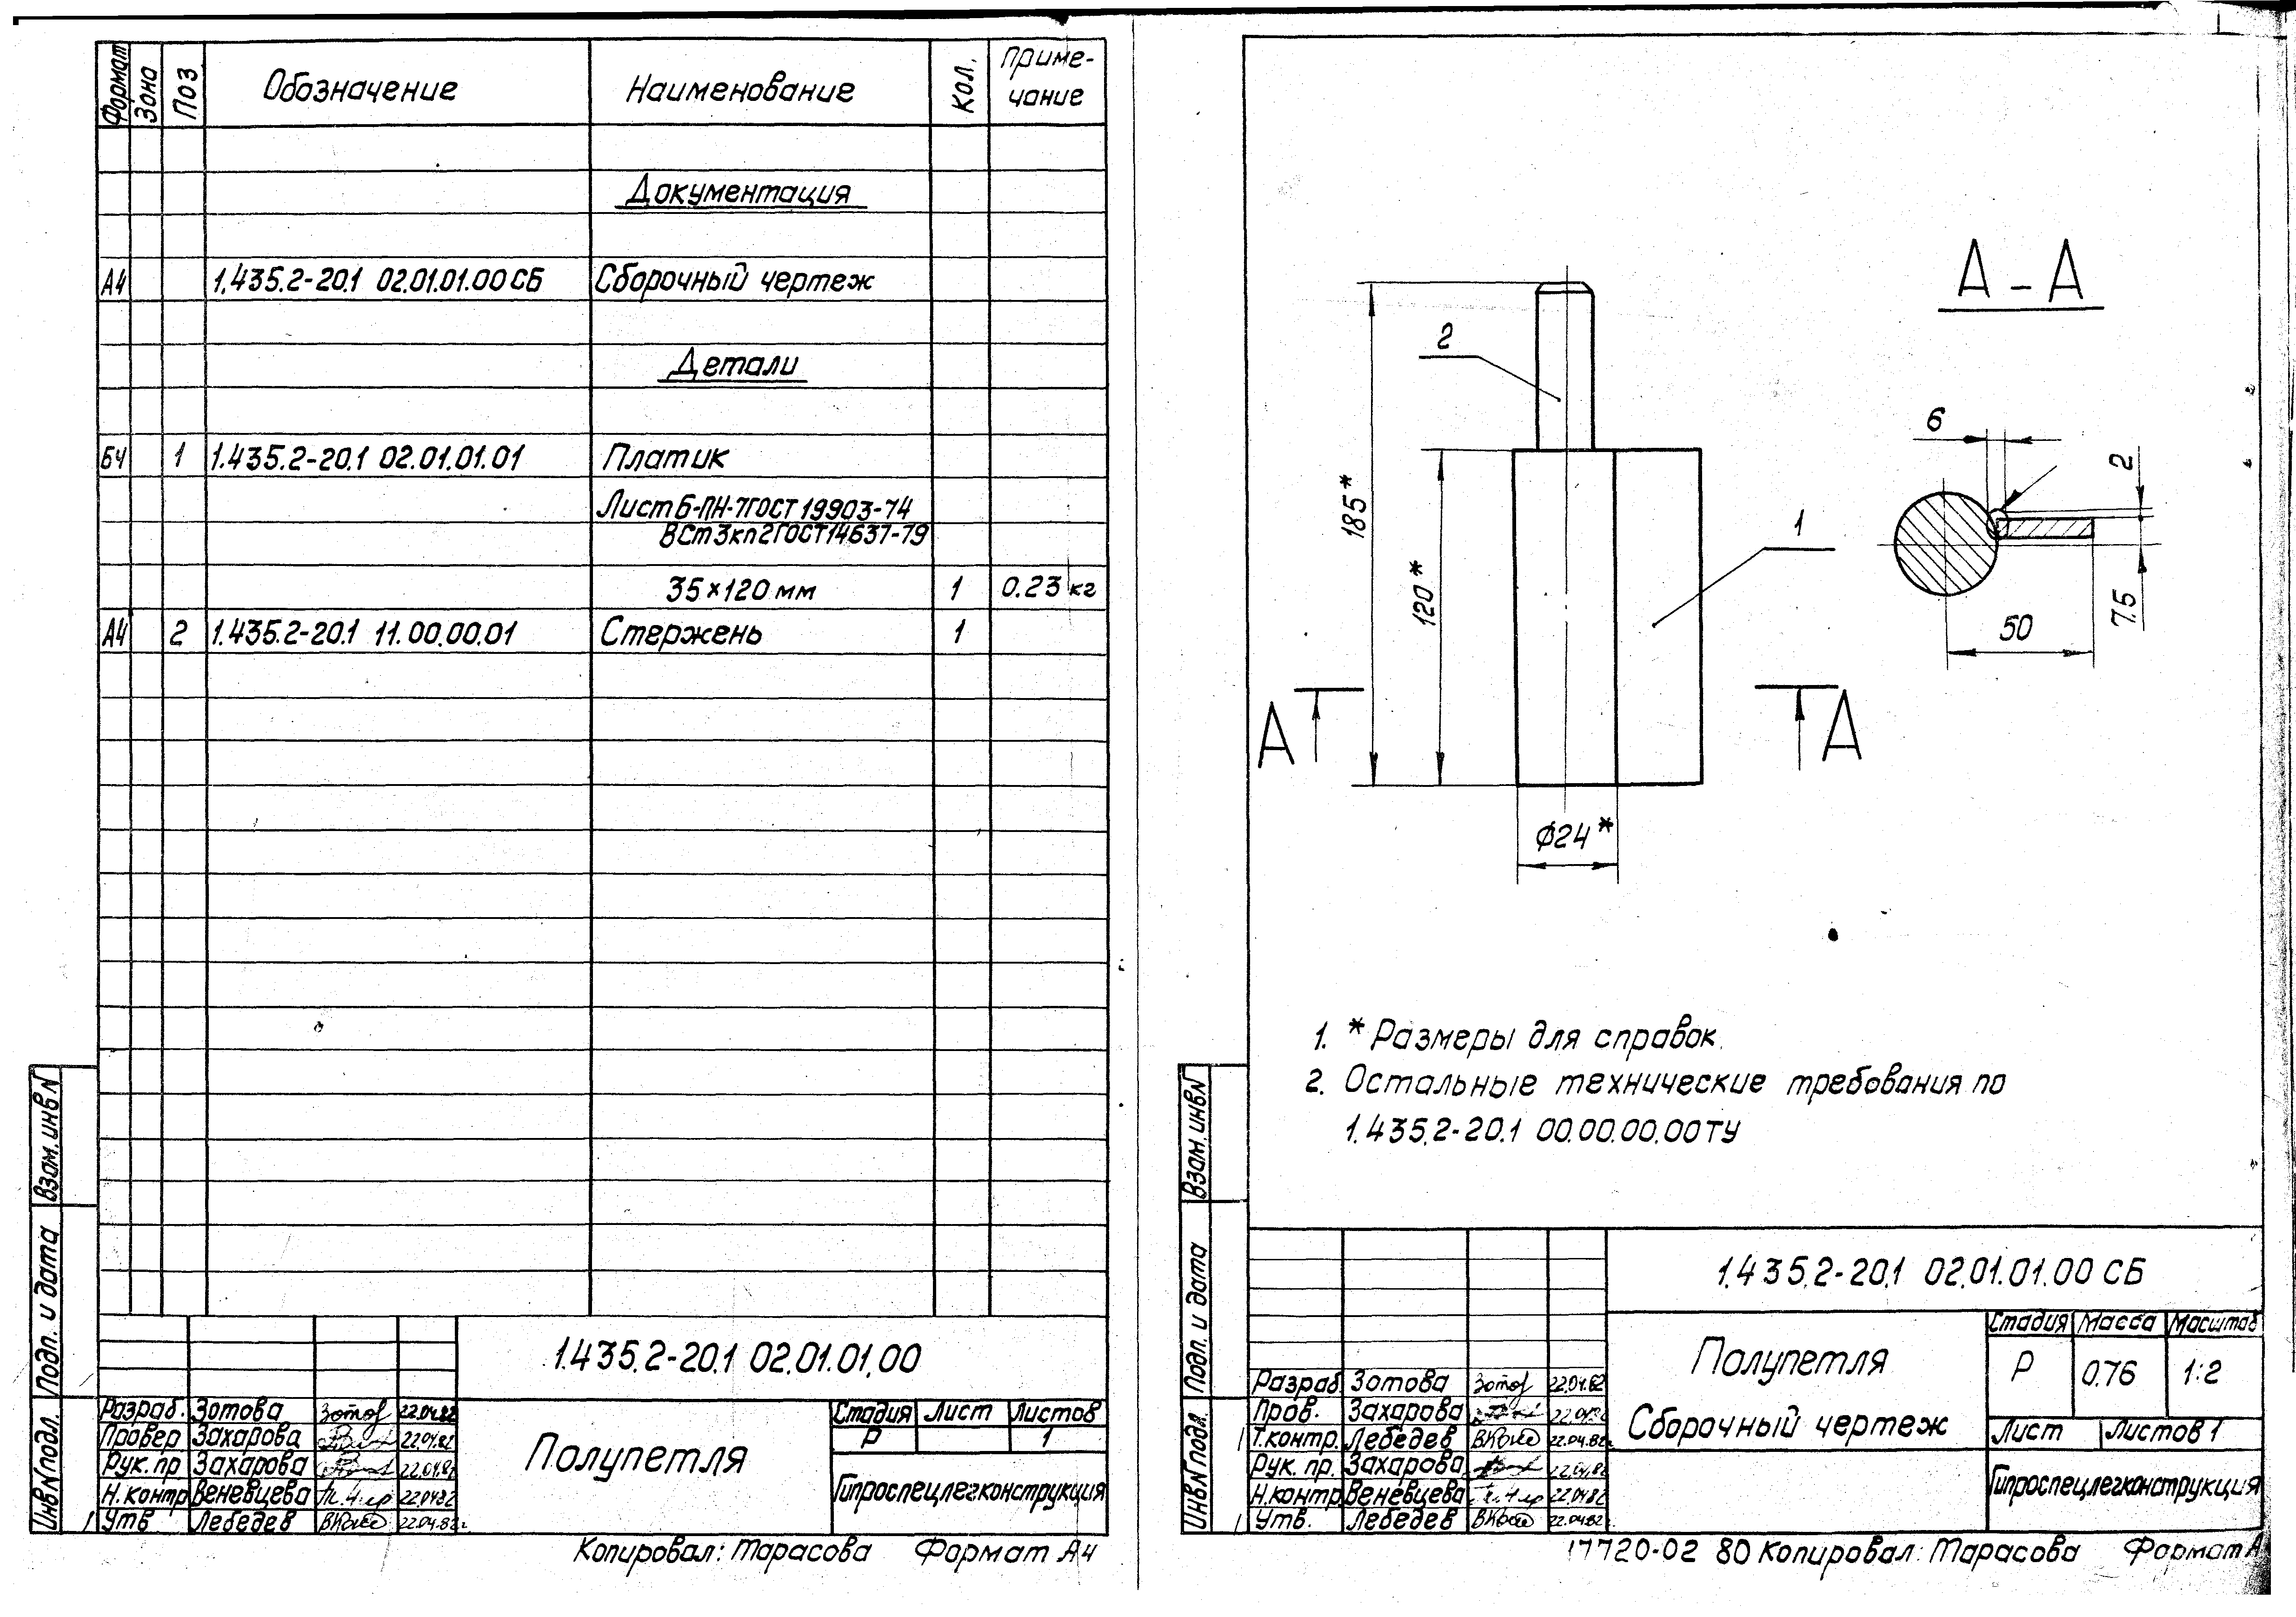 Формат Зона Поз Обозначение Наименование Кол. Приме-
чание
Документация
А4 1.435.2-20.1 02.01.01.00 СБ Сборочный чертеж
Детали
БЧ 1 1.435.2-20.1 02.01.01.01 Платик
Лист Б-ПН-7 ГОСТ 19903-74
ВСт3кп2 ГОСТ 14637-79
35×120 мм 1 0.23 кг
А4 2 1.435.2-20.1 11.00.00.01 Стержень 1
Взам. инв N
Подп. и дата
Инв N подл.
1.435.2-20.1 02.01.01.00
Разраб. Зотова 22.04.82
Провер Захарова 22.04.82
Рук. пр Захарова 22.04.82
Н. контр Веневцева 22.04.82
Утв Лебедев 22.04.82г.
Полупетля
Стадия Лист Листов
Р 1
Гипроспецлегконструкция
Копировал: Тарасова Формат А4
А - А
2
185*
120*
1
А А
⌀24*
6
2
7.5
50
1. * Размеры для справок.
2. Остальные технические требования по
1.435.2-20.1 00.00.00.00 ТУ
Взам. инв N
Подп. и дата
Инв N подл.
1.435.2-20.1 02.01.01.00 СБ
Разраб Зотова 22.04.82
Пров. Захарова 22.04.82
Т. контр. Лебедев 22.04.82г.
Рук. пр. Захарова 22.04.82
Н. контр Веневцева 22.04.82
Утв. Лебедев 22.04.82
Полупетля
Сборочный чертеж
Стадия Масса Масштаб
Р 0.76 1:2
Лист Листов 1
Гипроспецлегконструкция
17720-02 80 Копировал: Тарасова Формат А